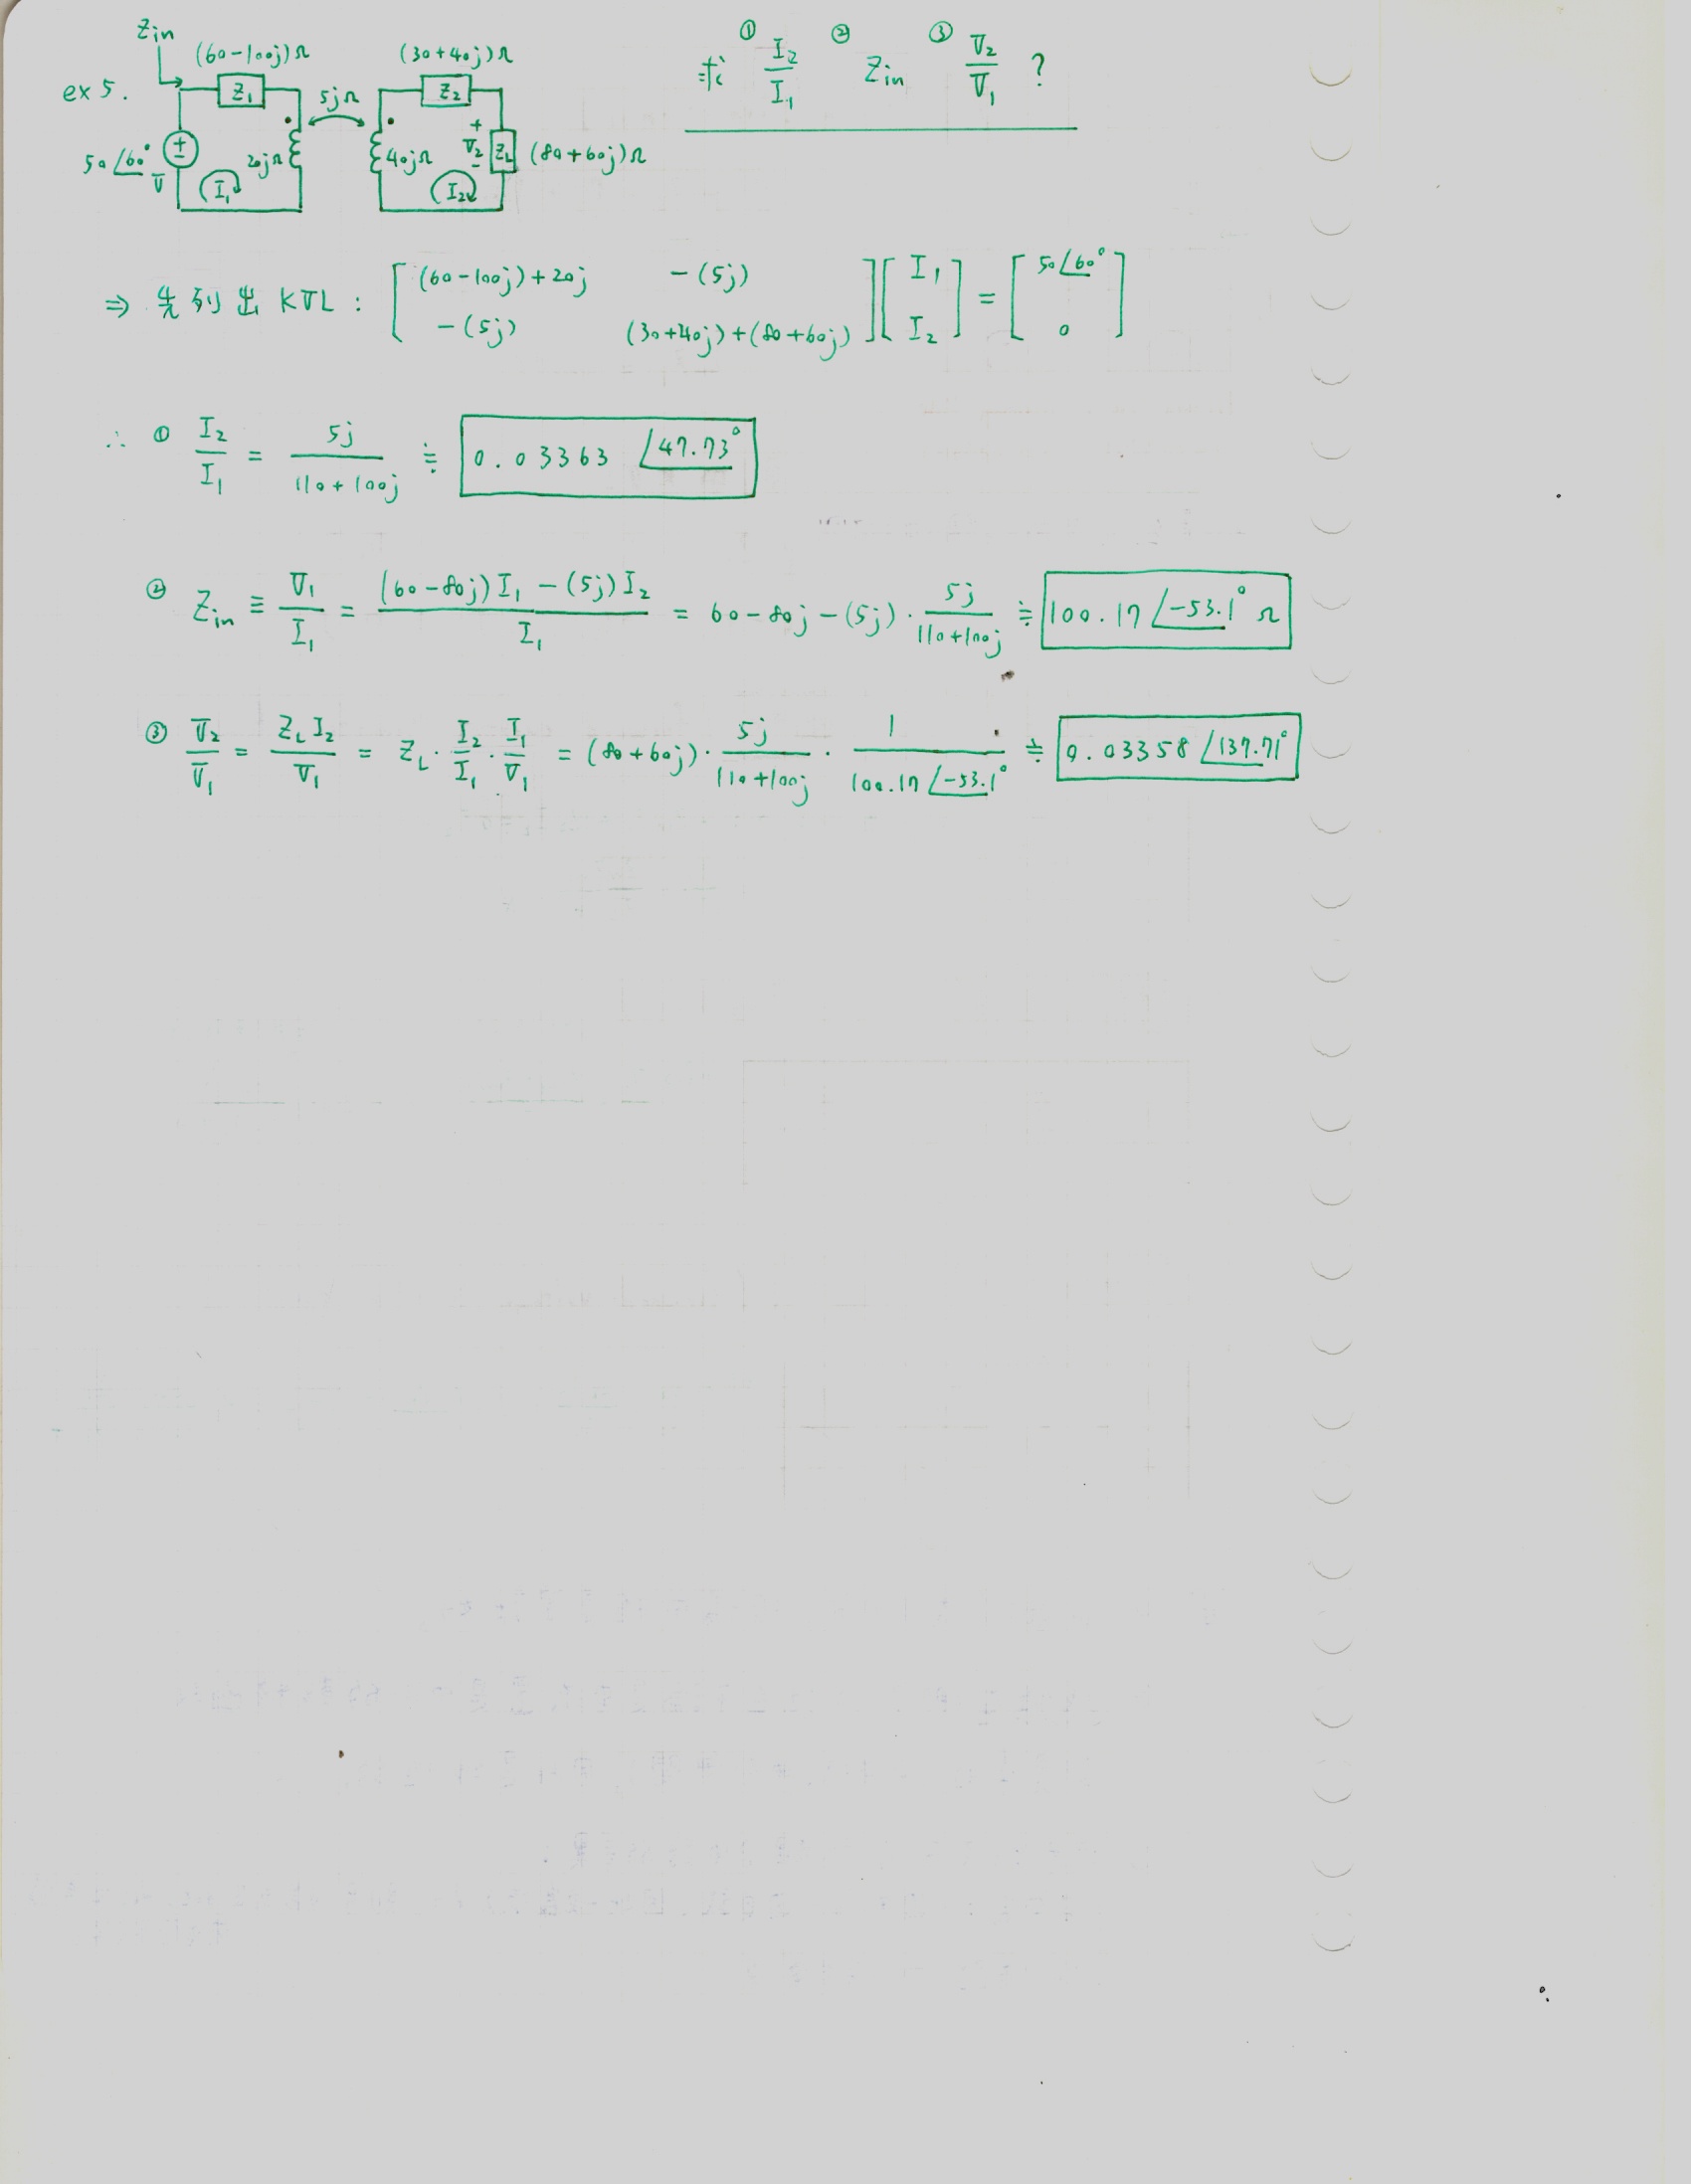 Zin
(60-100j)Ω (30+40j)Ω
ex 5. Z₁ 5jΩ Z₂
50∠60° V + - I₁ 20jΩ 40jΩ I₂ + V₂ - ZL (80+60j)Ω
求 ① I₂/I₁ ② Zin ③ V₂/V₁ ?
⇒ 先列出 KVL : [ (60-100j)+20j -(5j) ; -(5j) (30+40j)+(80+60j) ] [ I₁ ; I₂ ] = [ 50∠60° ; 0 ]
∴ ① I₂/I₁ = 5j/(110+100j) ≒ 0.03363 ∠47.73°
② Zin ≡ V₁/I₁ = ((60-80j)I₁ - (5j)I₂)/I₁ = 60-80j-(5j)·5j/(110+100j) ≒ 100.17 ∠-53.1° Ω
③ V₂/V₁ = ZL I₂/V₁ = ZL · I₂/I₁ · I₁/V₁ = (80+60j) · 5j/(110+100j) · 1/(100.17∠-53.1°) ≒ 0.03358 ∠137.71°